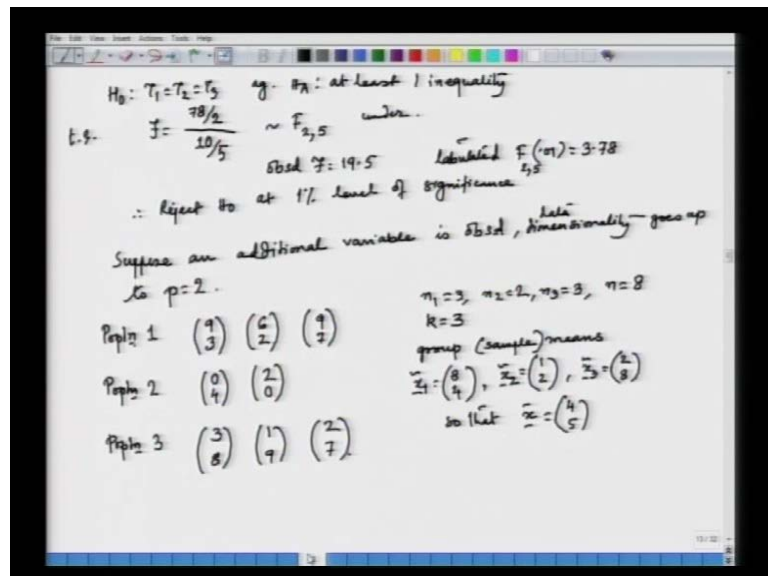 File Edit View Insert Actions Tools Help
H₀: τ₁ = τ₂ = τ₃ ag. H_A: at least 1 inequality
t.s. F = (78/2)/(10/5) ~ F₂,₅ under.
obsd F = 19.5 tabulated F₂,₅(.01) = 3.78
∴ Reject H₀ at 1% level of significance
Suppose an additional variable is obsd, data dimensionality goes up
to p = 2.
Popln 1 (9 3) (6 2) (9 7)
Popln 2 (0 4) (2 0)
Popln 3 (3 8) (1 9) (2 7).
n₁ = 3, n₂ = 2, n₃ = 3, n = 8
k = 3
group (sample) means
x̄₁ = (8 4), x̄₂ = (1 2), x̄₃ = (2 8)
so that x̄ = (4 5)